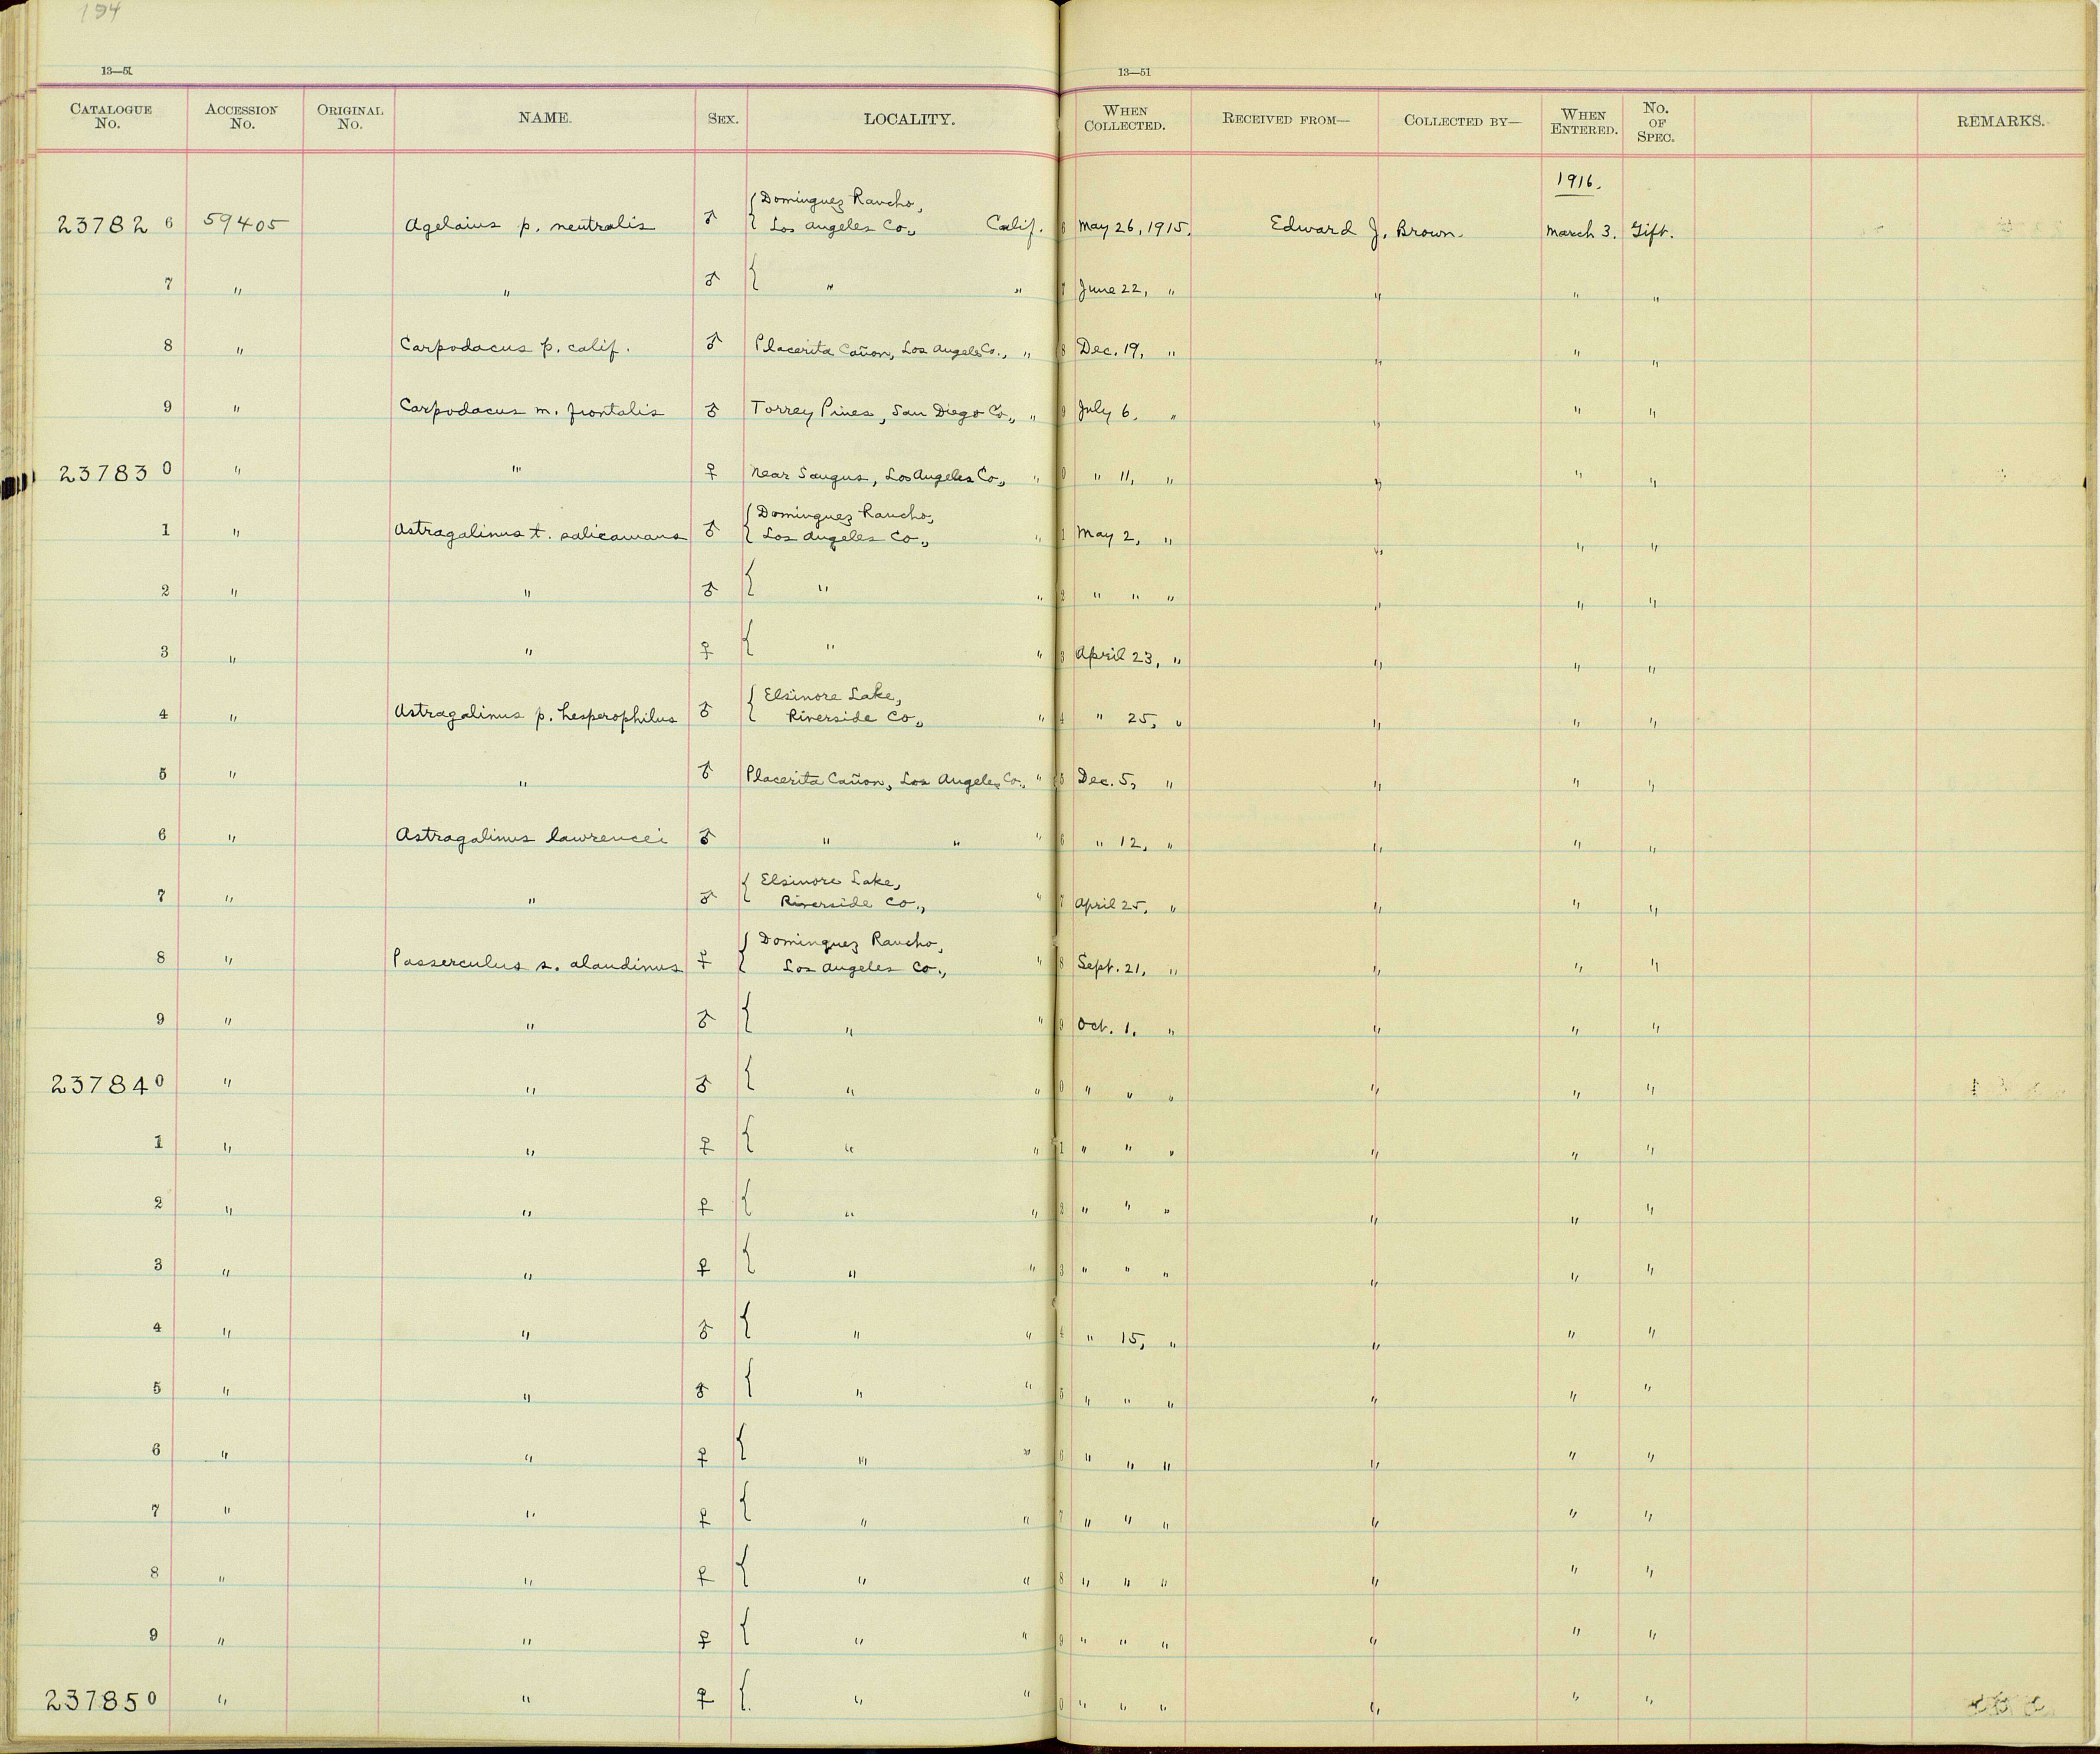 194
13—51
13—51
CATALOGUE No. ACCESSION No. ORIGINAL No. NAME. SEX. LOCALITY. WHEN COLLECTED. RECEIVED FROM— COLLECTED BY— WHEN ENTERED. No. OF SPEC. REMARKS.
1916.
{ Dominguez Rancho,
23782 6 59405 Agelaius p. neutralis ♂ { Los Angeles Co., Calif. 6 May 26, 1915. Edward J. Brown. March 3. Gift.
7 " " ♂ { " " 7 June 22, " " " "
8 " Carpodacus p. calif. ♂ Placerita Cañon, Los Angeles Co., " 8 Dec. 19, " " " "
9 " Carpodacus m. frontalis ♂ Torrey Pines, San Diego Co., " 9 July 6, " " " "
23783 0 " " ♀ Near Saugus, Los Angeles Co., " 0 " 11, " " " "
{ Dominguez Rancho,
1 " Astragalinus t. salicamans ♂ { Los Angeles Co., " 1 May 2, " " " "
2 " " ♂ { " " 2 " " " " " "
3 " " ♀ { " " 3 April 23, " " " "
{ Elsinore Lake,
4 " Astragalinus p. hesperophilus ♂ { Riverside Co., " 4 " 25, " " " "
5 " " ♂ Placerita Cañon, Los Angeles Co., " 5 Dec. 5, " " " "
6 " Astragalinus lawrencei ♂ " " " 6 " 12, " " " "
{ Elsinore Lake,
7 " " ♂ { Riverside Co., " 7 April 25, " " " "
{ Dominguez Rancho,
8 " Passerculus s. alaudinus ♀ { Los Angeles Co., " 8 Sept. 21, " " " "
9 " " ♂ { " " 9 Oct. 1, " " " "
23784 0 " " ♂ { " " 0 " " " " " "
1 " " ♀ { " " 1 " " " " " "
2 " " ♀ { " " 2 " " " " " "
3 " " ♀ { " " 3 " " " " " "
4 " " ♂ { " " 4 " 15, " " " "
5 " " ♂ { " " 5 " " " " " "
6 " " ♀ { " " 6 " " " " " "
7 " " ♀ { " " 7 " " " " " "
8 " " ♀ { " " 8 " " " " " "
9 " " ♀ { " " 9 " " " " " "
23785 0 " " ♀ { " " 0 " " " " " "